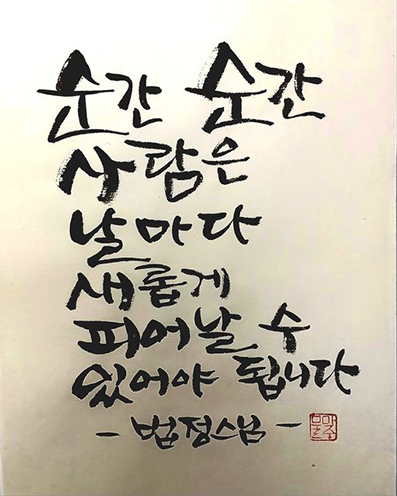 순간 순간
사람은
날마다
새롭게
피어날 수
있어야 됩니다
- 법정스님 -